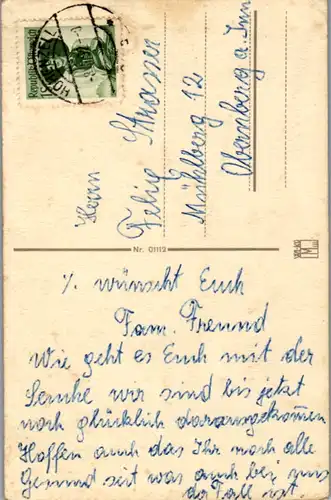 Herrn
Felix Strasser
Mühlberg 12
Obernberg a. Inn
Republik Österreich
Nr. 01112
%. wünscht Euch
Fam. Freund
Wie geht es Euch mit der
Seuche wir sind bis jetzt
noch glücklich darausgekommen
Hoffen auch das Ihr noch alle
Gesund seit was auch bei uns
der Fall ist